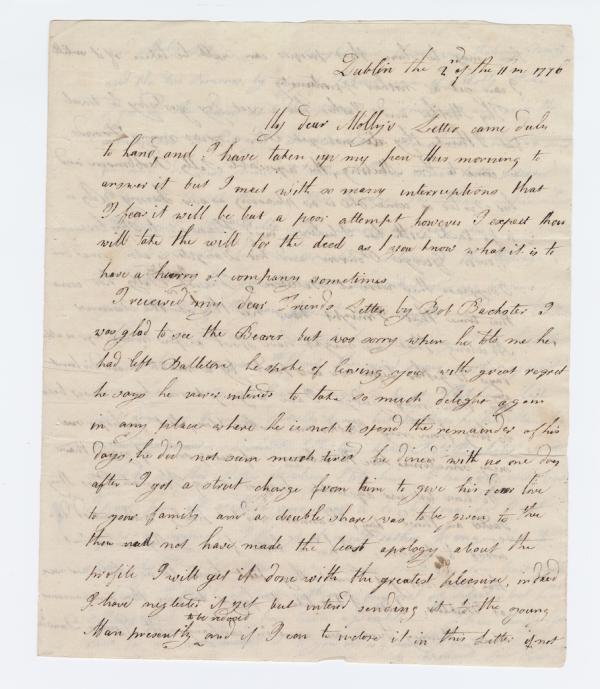 Dublin the 2nd of the 11 m 1776
My dear Molly's Letter came duly
to hand, and I have taken up my pen this morning to
answer it but I meet with so many interruptions that
I fear it will be but a poor attempt however I expect thou
will take the will for the deed as you know what it is to
have a hurry of company sometimes
I received my dear Friends Letter by Bob Backster I
was glad to see the Bearer but was sorry when he told me he
had left Balletore he spoke of leaving you with great regret
he says he never intends to take so much delight again
in any place where he is not to spend the remainder of his
days, he did not seem much tired he dined with us one day
after I got a strict charge from him to give his dear love
to your family and a double share was to be given to thee
thou need not have made the least apology about the
profile I will get it done with the greatest pleasure, indeed
I have neglected it yet but intend sending it to the young
Man presently to be reduced and if I can to inclose it in this Letter if not